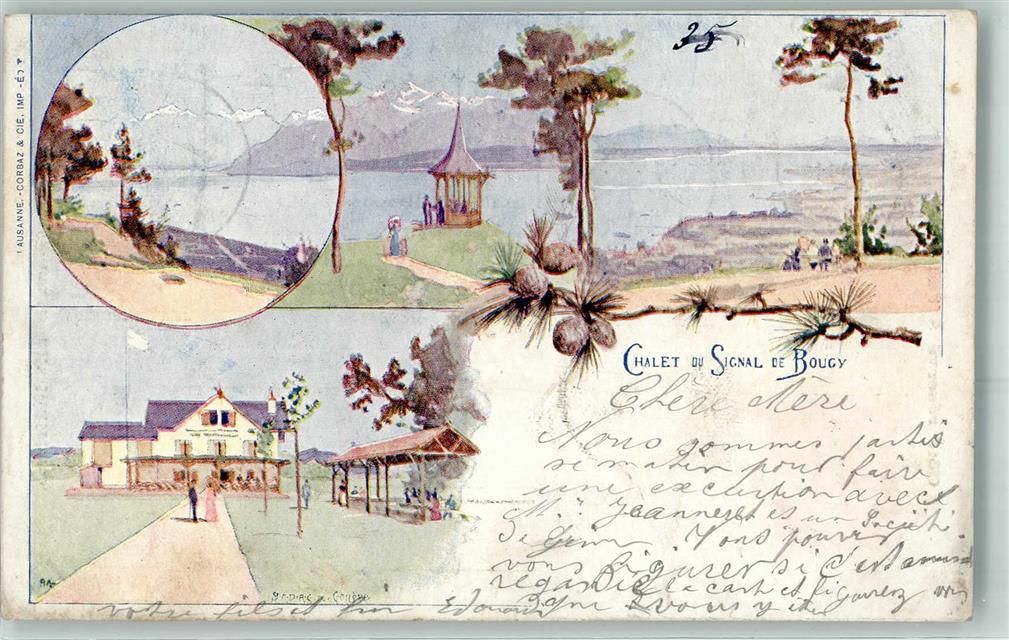 35
LAUSANNE.-CORBAZ & CIE, IMP-ÉD
CHALET DU SIGNAL DE BOUGY
Chère Mère
Nous sommes partis
se matin pour faire
une excursion avec
M. Jeanneret es un Société
De Gim Vous pouvez
vous figurer si c'est amusa
regardez la cart et figurez vous
que vous y ete
votre fils et fin Edouard
S.A.D.A.G. GENÈVE